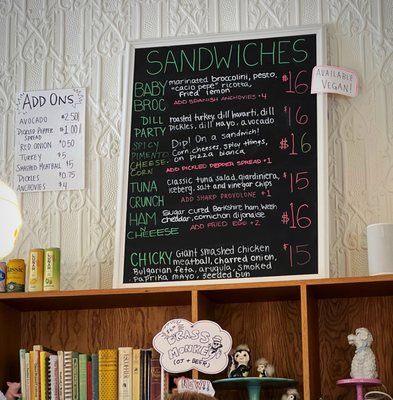 SANDWICHES
BABY BROC
marinated broccolini, pesto,
"cacio pepe" ricotta,
fried lemon
ADD SPANISH ANCHOVIES +4
$16
AVAILABLE
VEGAN!
DILL PARTY
roasted turkey, dill havarti, dill
pickles, dill mayo, avocado
$16
SPICY PIMENTO CHEESE CORN
Dip! On a sandwich!
Corn, cheeses, sploy things,
on pizza bianca
ADD PICKLED PEPPER SPREAD +1
$16
TUNA CRUNCH
Classic tuna salad, giardiniera,
iceberg, salt and vinegar chips
ADD SHARP PROVOLONE +1
$15
HAM N CHEEESE
Sugar cured Berkshire ham, Welsh
cheddar, cornichon dijonaise
ADD FRIED EGG +2
$16
CHICKY
Giant smashed chicken
meatball, charred onion,
Bulgarian feta, arugula, smoked
paprika mayo, seeded bun
$15
ADD ONS
AVOCADO $2.50
Pickled Pepper Spread $1.00
RED ONION $0.50
Turkey $5
Smashed Meatball $5
Pickles $0.75
ANCHOVIES $4
BRASS
MONKEY
(OT + BEER)
NEW!